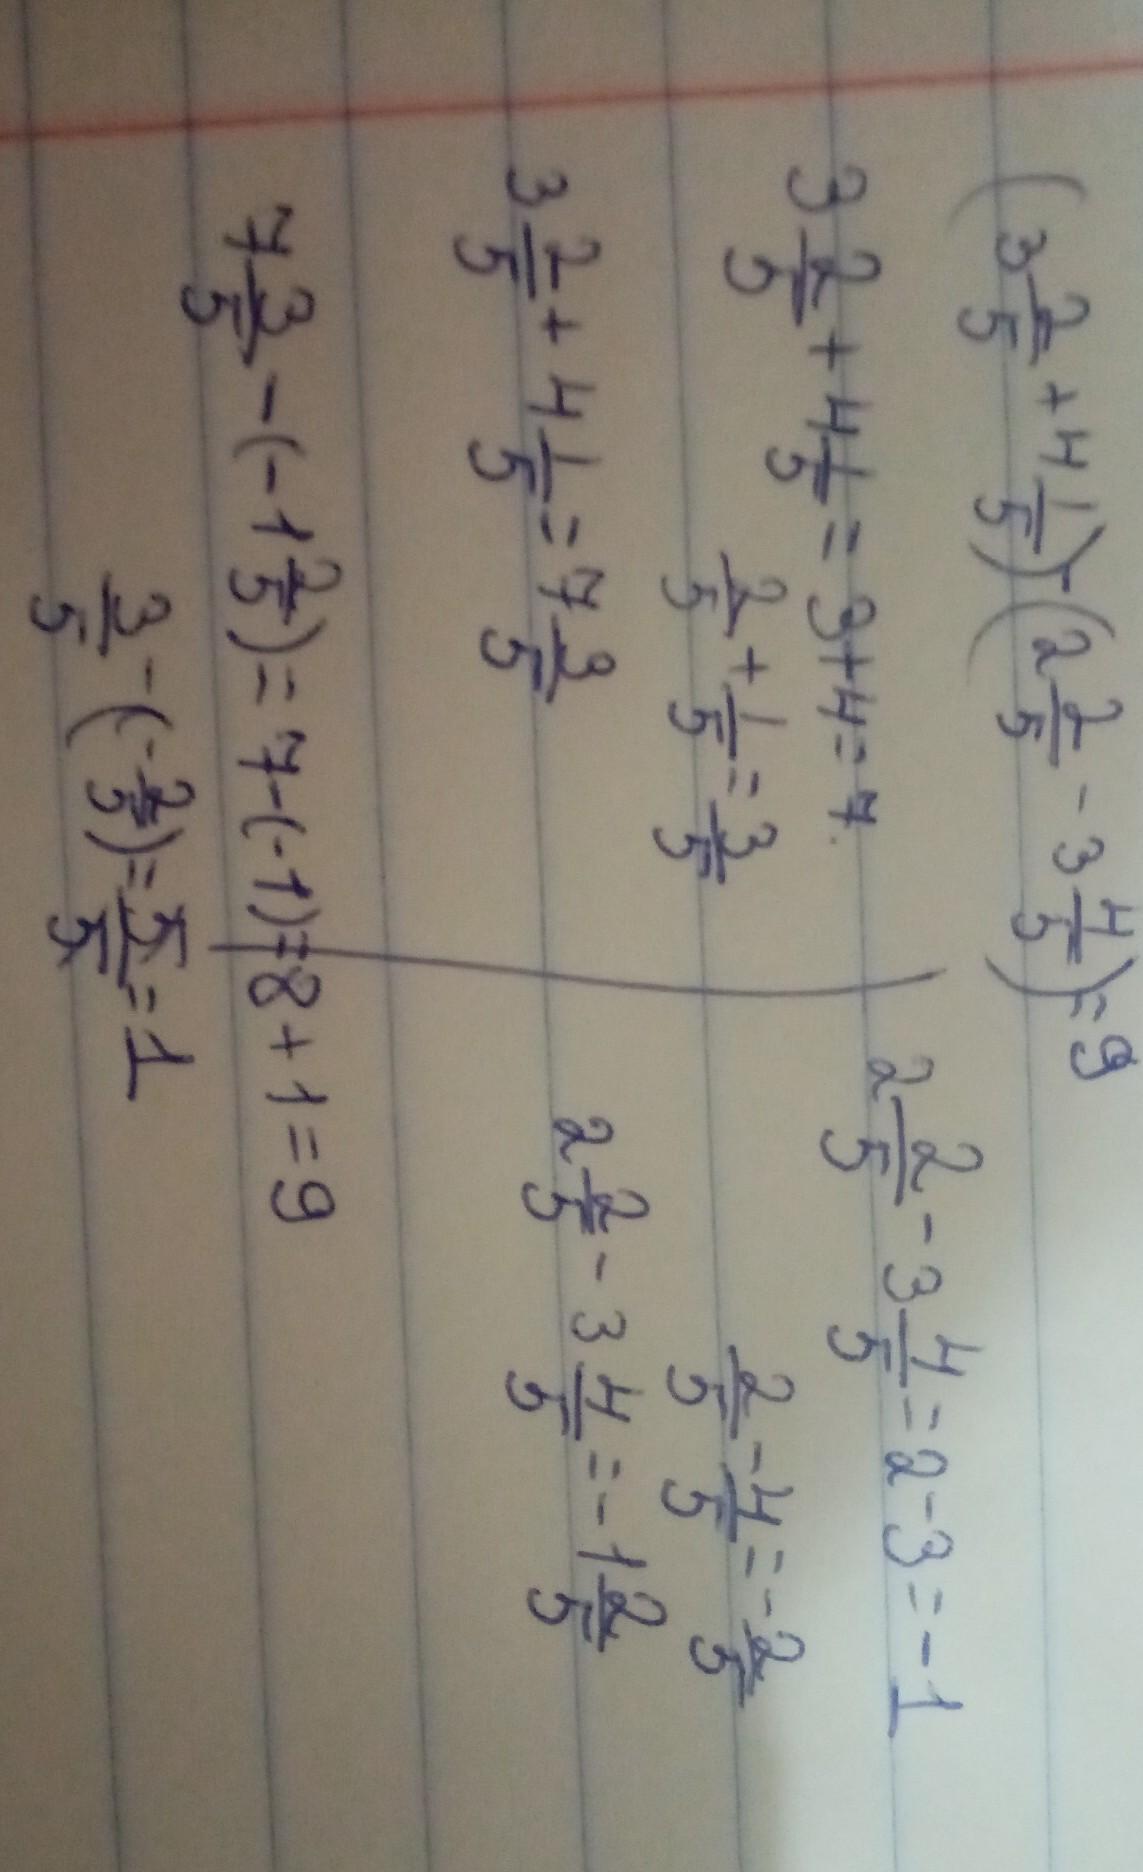 (3 2/5 + 4 1/5) - (2 2/5 - 3 4/5) = 9
3 2/5 + 4 1/5 = 3 + 4 = 7.
2/5 + 1/5 = 3/5
3 2/5 + 4 1/5 = 7 3/5
2 2/5 - 3 4/5 = 2 - 3 = -1
2/5 - 4/5 = -2/5
2 2/5 - 3 4/5 = -1 2/5
7 3/5 - (-1 2/5) = 7 - (-1) = 8 + 1 = 9
3/5 - (-2/5) = 5/5 = 1